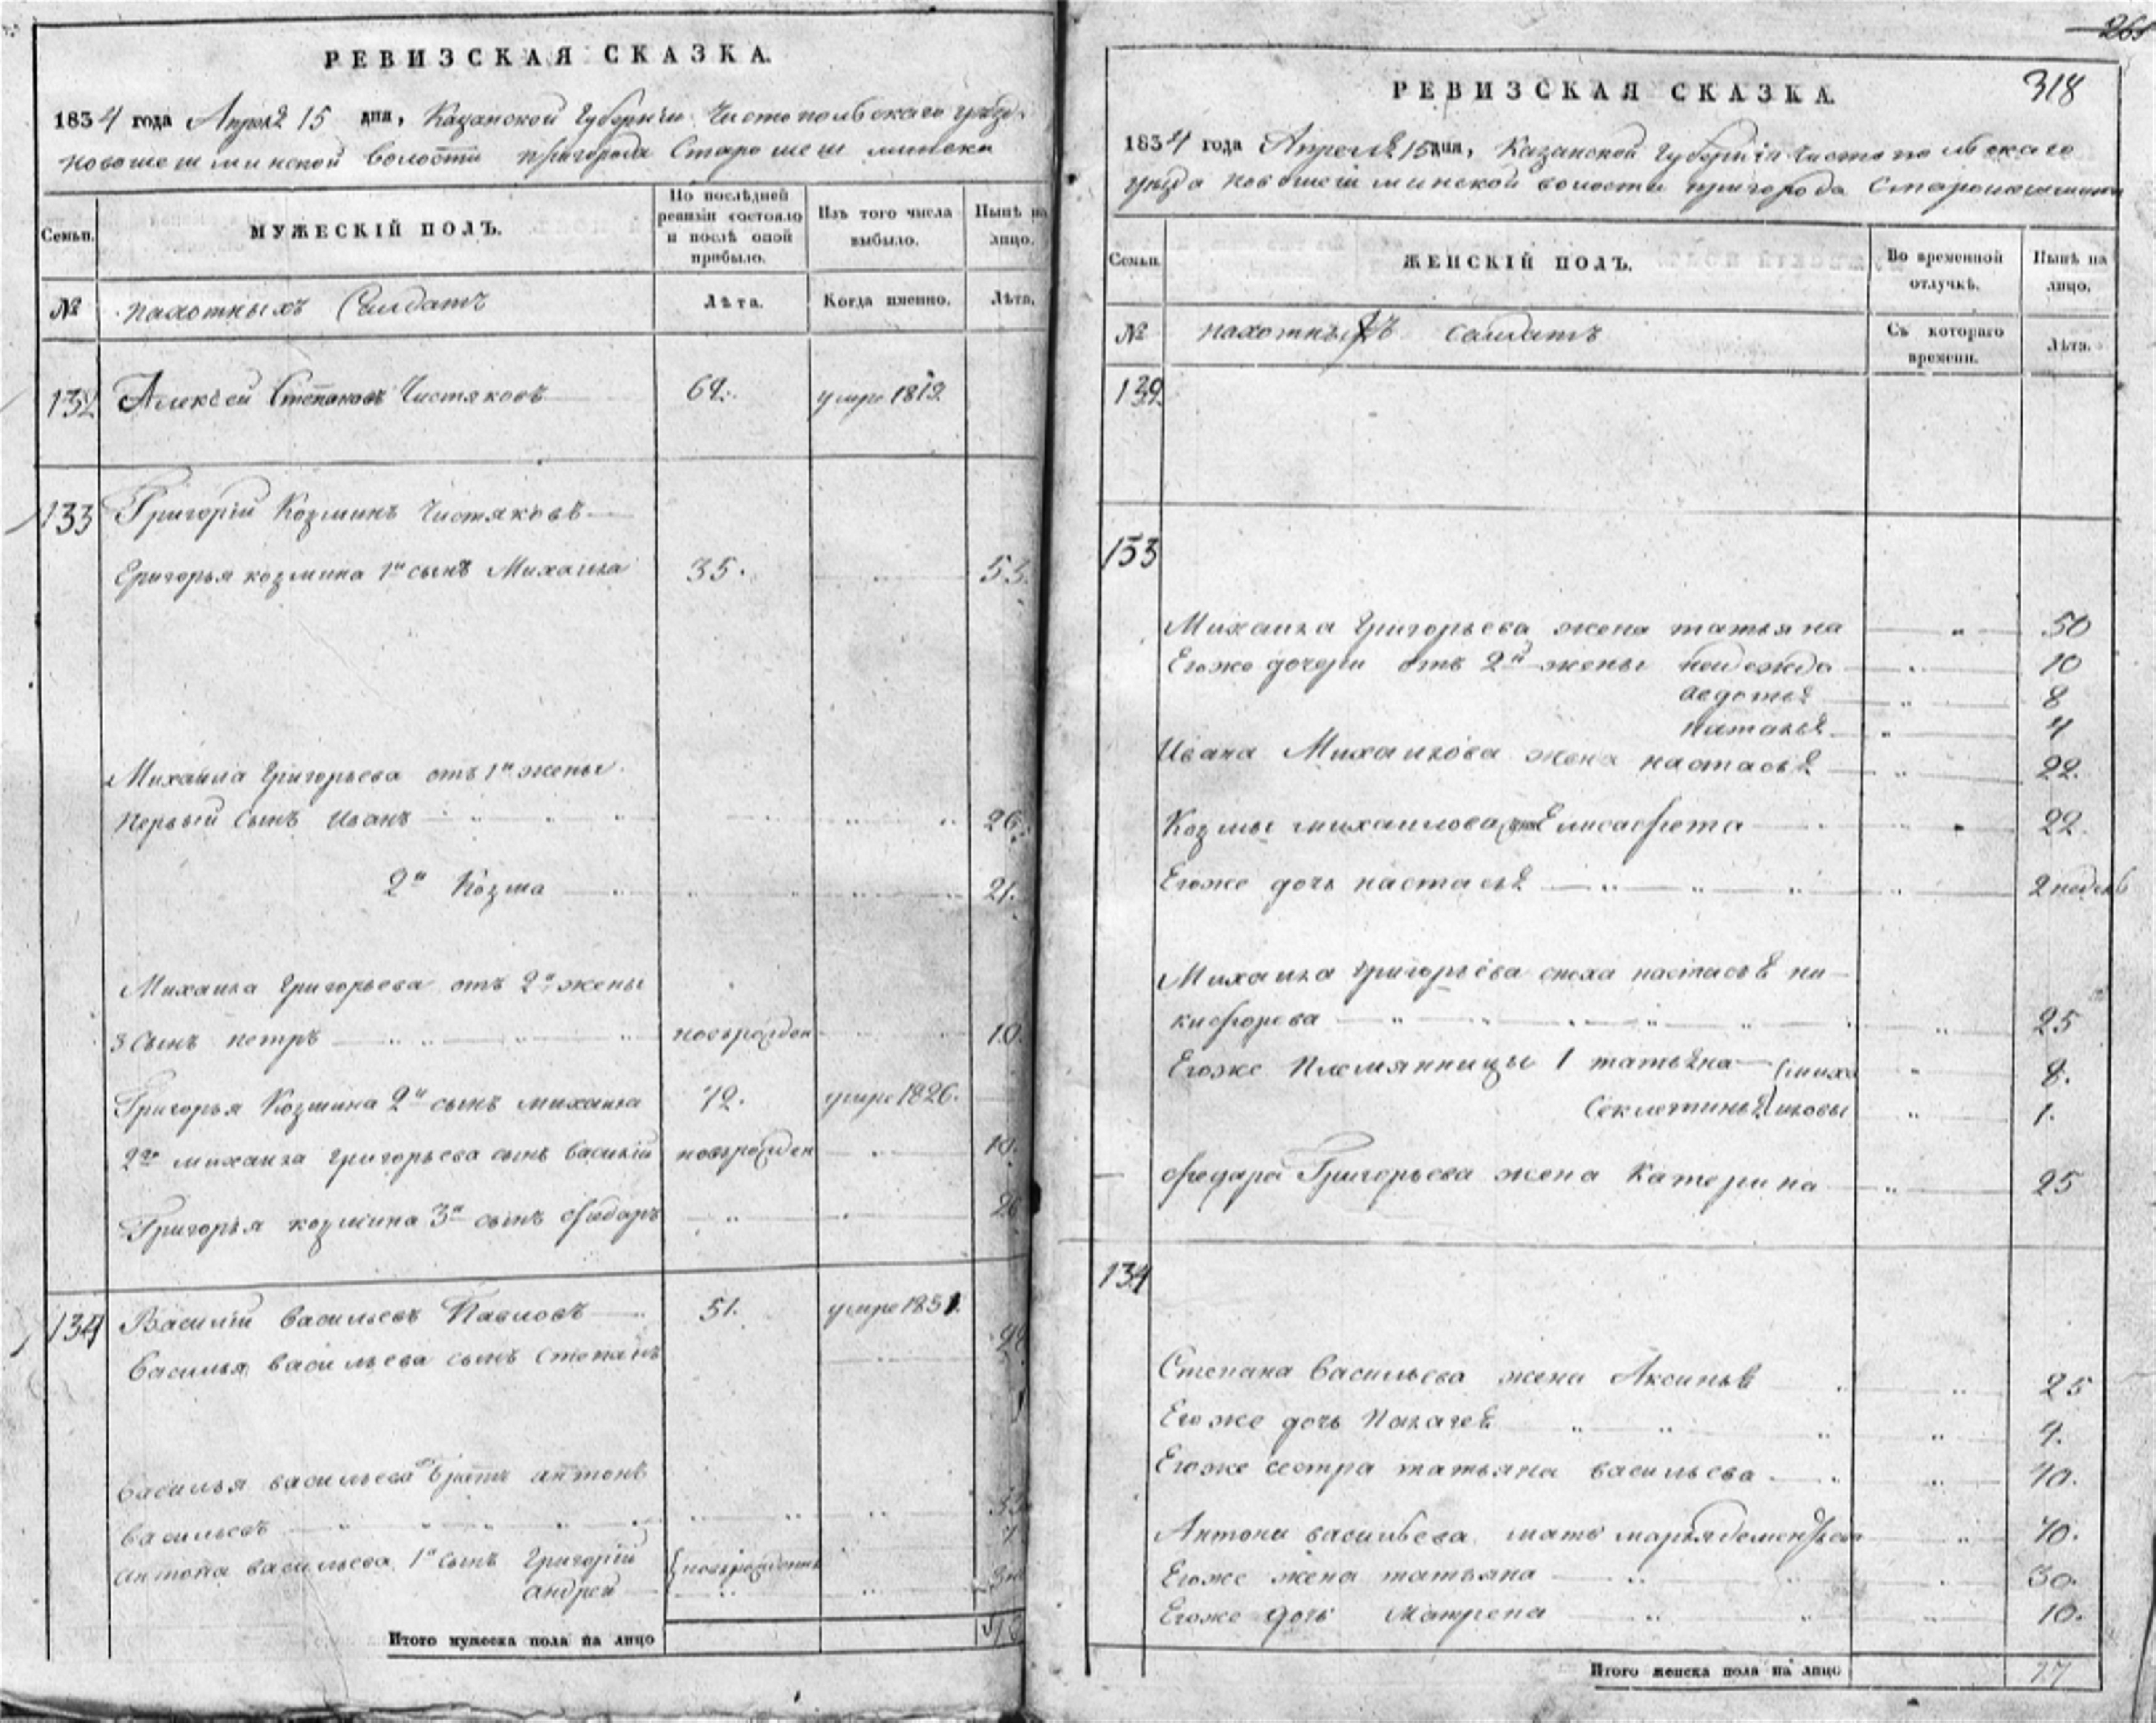 РЕВИЗСКАЯ СКАЗКА.
1834 года Апреля 15 дня, Казанской Губернии Чистопольскаго уезда
новошешминской волости пригорода Старошешминска
Семьи.
МУЖЕСКІЙ ПОЛЪ.
По послѣдней ревизіи состояло и послѣ оной прибыло.
Изъ того числа выбыло.
Нынѣ на лицо.
№ пахотныхъ Салдатъ Лѣта. Когда именно. Лѣта.
132 Алексей Степановъ Чистяковъ 62. умре 1812
133 Григорій Козминъ Чистяковъ
Григорья козмина 1й сынъ Михаила 35. 53.
Михаила Григорьева отъ 1й жены
первый сынъ Иванъ 26.
2й Козма 21.
Михаила Григорьева отъ 2й жены
3 сынъ петръ новорожден 10.
Григорья Козмина 2й сынъ михаила 12. умре 1826.
2го михаила григорьева сынъ василій новорожден 10.
Григорья козмина 3й сынъ федаръ 26
134 Василій васильевъ Павловъ 51. умре 1831.
василья васильева сынъ степанъ
василья васильева братъ антонъ
васильевъ
антона васильева 1й сынъ Григорій новорожденны
андрей
Итого мужеска пола на лицо
265
318
РЕВИЗСКАЯ СКАЗКА.
1834 года Апреля 15 дня, Казанской Губерніи Чистопольскаго
уезда новошешминской волости пригорода Старошешминска
Семьи.
ЖЕНСКІЙ ПОЛЪ.
Во временной отлучкѣ.
Нынѣ на лицо.
№ пахотныхъ салдатъ Съ котораго времени. Лѣта.
132.
133
Михаила Григорьева жена татьяна 50
Егоже дочери отъ 2й жены надежда 10
авдотья 8
наталья 4
Ивана Михаилова жена настасья 22.
Козмы михаилова Елисафета 22.
Егоже дочь настасья 2 недель
Михаила григорьева сноха настасья ни-
кифорова 25
Егоже племянницы 1 татьяна (миха 8.
Секлетинья) иловы 1.
федара Григорьева жена Катерина 25
134
Степана васильева жена Аксинья 25
Егоже дочь Палагея 4.
Егоже сестра татьяна васильева 40.
Антона васильева мать марья дементьева 70.
Егоже жена татьяна 30.
Егоже дочь Матрена 10.
Итого женска пола на лицо 17